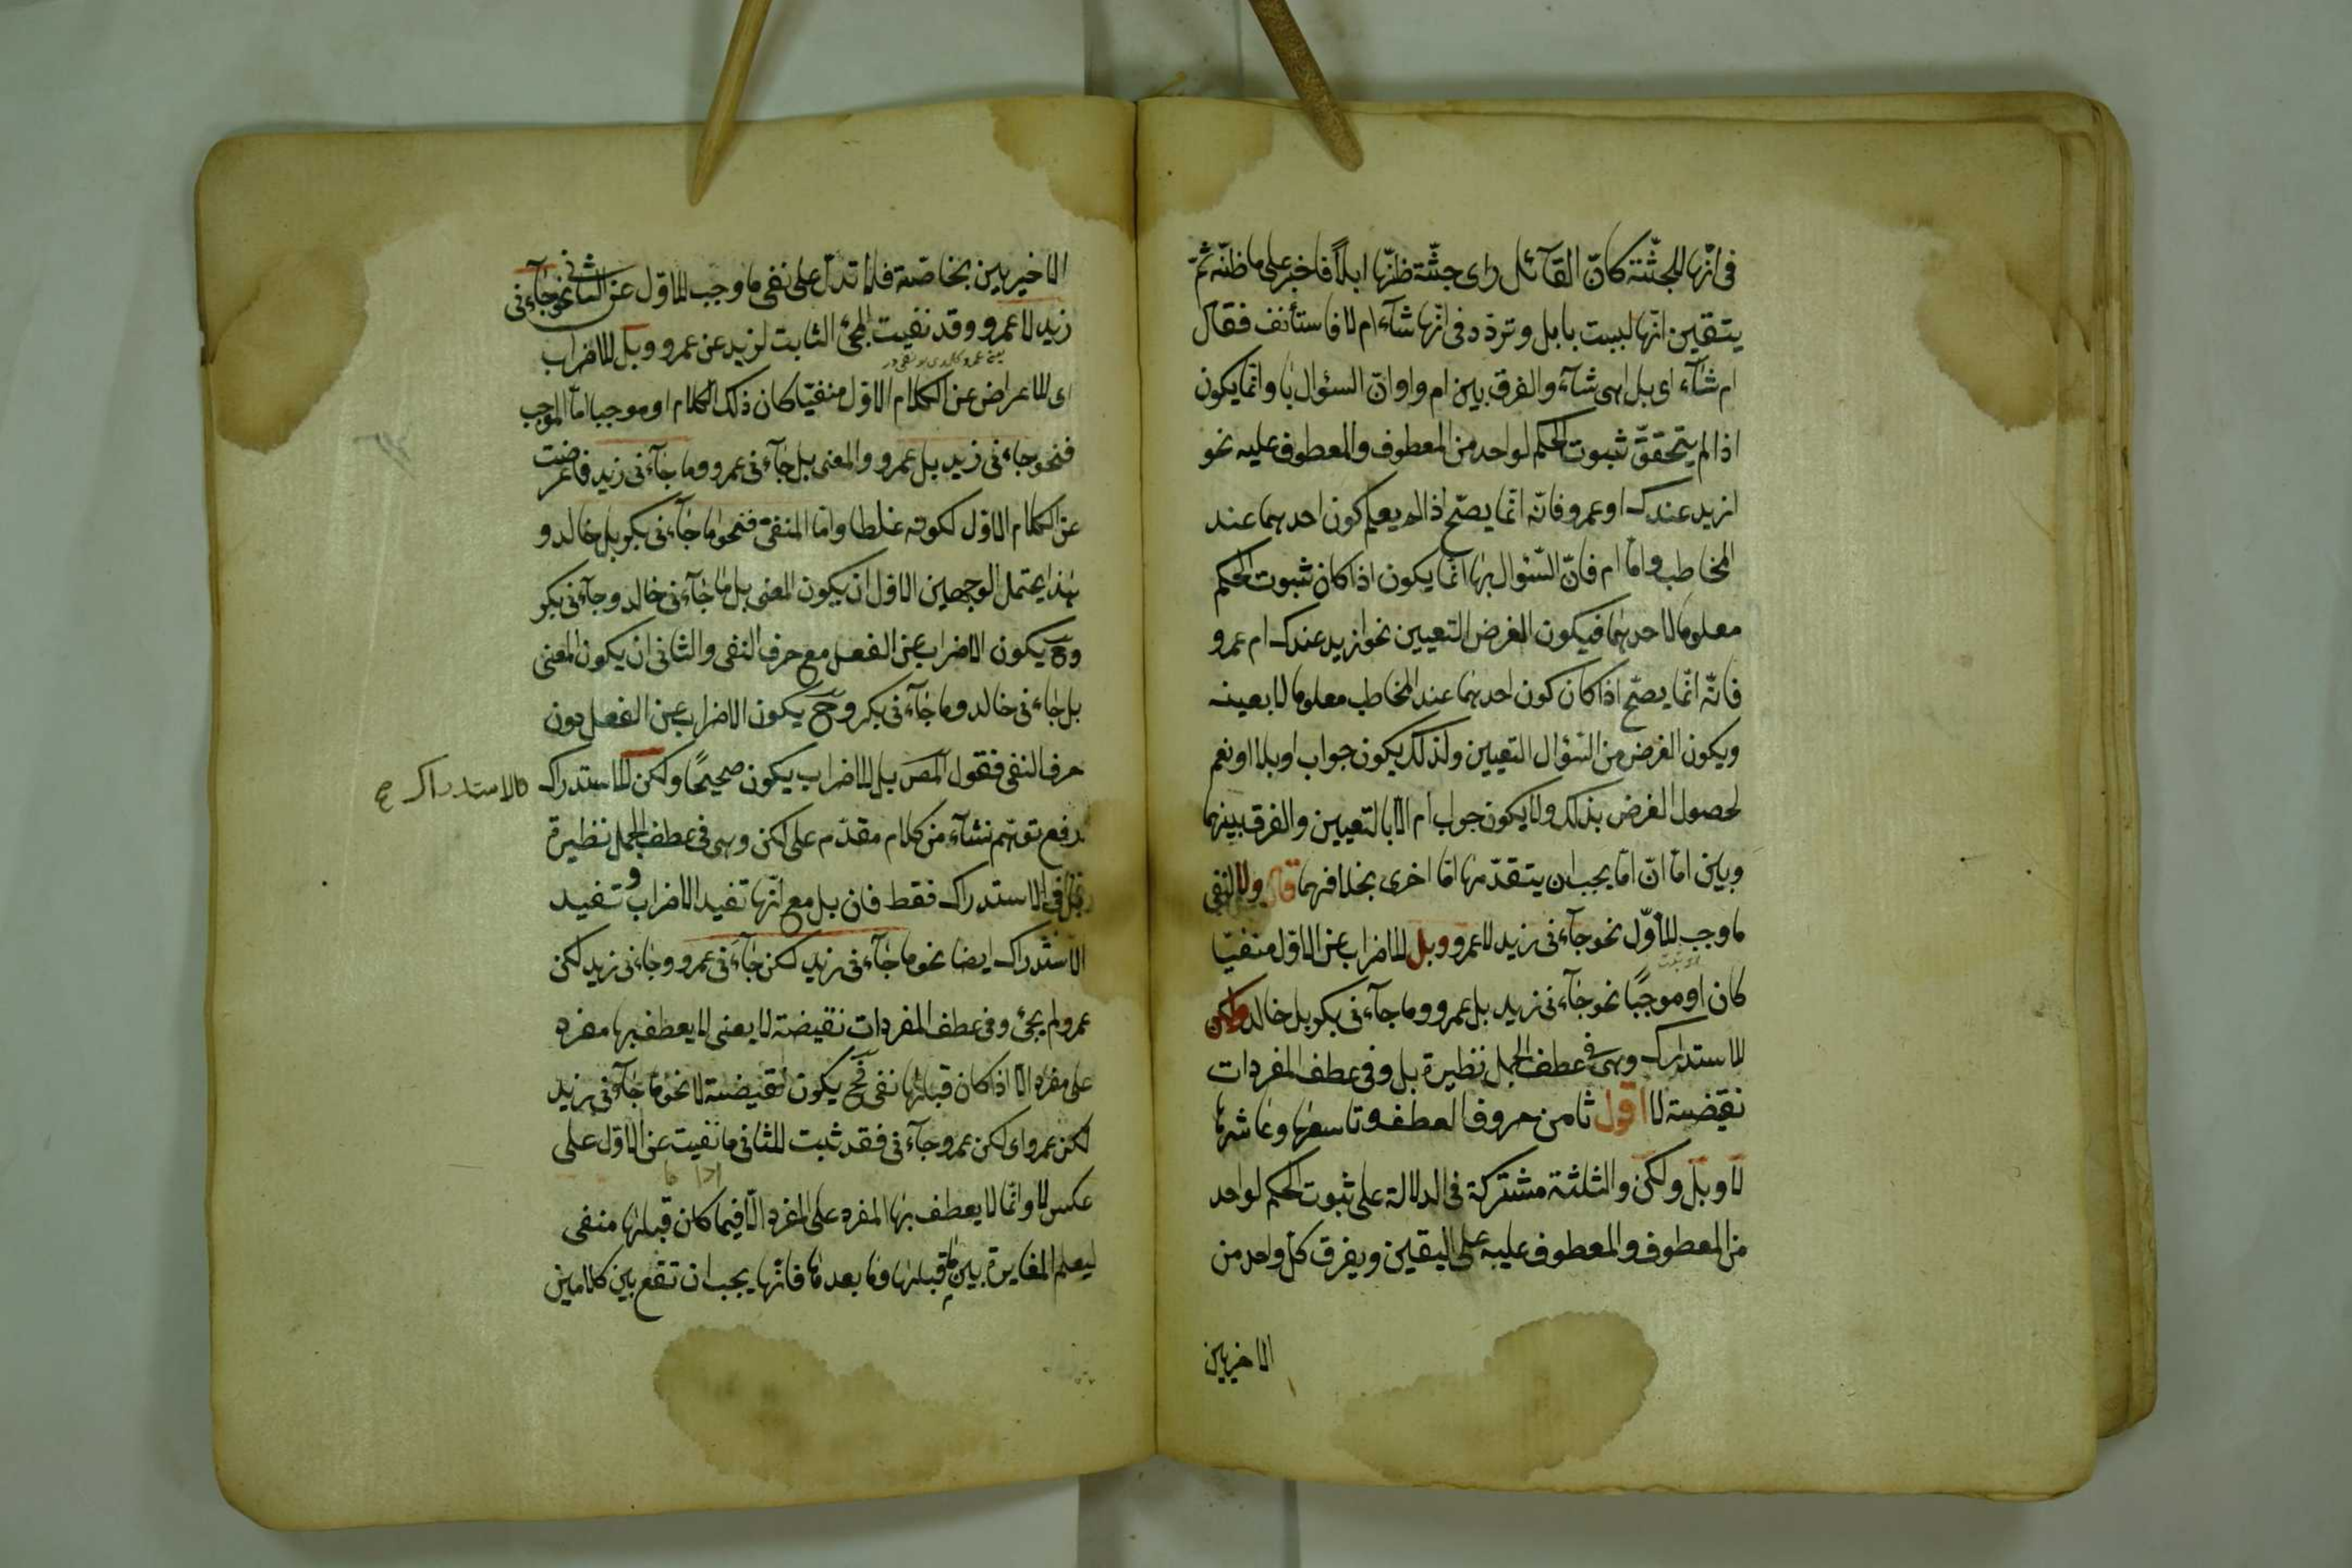 فى انّها للجثّة كانّ القآئل راى جثّة ظنّها ابلاً فاخبر على ما ظنّه ثمّ
يتقين انّها ليست بابل وتردّد فى انّها شآء ام لا فاستأنف فقال
ام شآء اى بل اهى شآء والفرق بين ام واو انّ السؤال باو انّما يكون
اذا لم يتحقّق ثبوت الحكم لواحد من المعطوف والمعطوف عليه نحو
ازيد عندك او عمرو فانّه انّما يصحّ اذا لم يعلم كون احدهما عند
المخاطب وامّا ام فانّ السّؤال بها انّما يكون اذا كان ثبوت الحكم
معلوما لاحدهما فيكون الغرض التعيين نحو ازيد عندك ام عمرو
فانّه انّما يصحّ اذا كان كون احدهما عند المخاطب معلوما لا بعينه
ويكون الغرض من السّؤال التعيين ولذلك يكون جواب او بلا او نعم
لحصول الغرض بذلك ولا يكون جواب ام الّا بالتعيين والفرق بينهما
وبين امّا انّ امّا يجب ان يتقدّمها امّا اخرى بخلافهما قال ولا لنفى
ما وجب للأوّل نحو جآءنى زيد لا عمرو وبل للاضراب عن الاوّل منفيّا
كان او موجبًا نحو جآءنى زيد بل عمرو وما جآءنى بكر بل خالد ولكن
للاستدراك وهى فى عطف الجمل نظيرة بل وفى عطف المفردات
نقيضة لا اقول ثامن حروف العطف وتاسعها وعاشرها
لا وبل ولكن والثلثة مشتركة فى الدلالة على ثبوت الحكم لواحد
من المعطوف والمعطوف عليه على اليقين ويفرق كلّ واحد من
الاخيرين
الاخيرين بخاصّة فلا تدلّ على نفى ما وجب للاوّل عن الثانى نحو جآءنى
زيد لا عمرو وقد نفيت المجئ الثابت لزيد عن عمرو وبل للاضراب
اى للاعراض عن الكلام الاوّل منفيّا كان ذلك الكلام او موجبا امّا الموجب
فنحو جاءنى زيد بل عمرو والمعنى بل جآءنى عمرو وما جآءنى زيد فاعرضت
عن الكلام الاوّل لكونه غلطا وامّا المنفىّ فنحو ما جآءنى بكر بل خالد و
هذا يحتمل الوجهين الاوّل ان يكون المعنى بل ما جآءنى خالد وجآءنى بكر
وح يكون الاضراب عن الفعل مع حرف النفى والثانى ان يكون المعنى
بل جاءنى خالد وما جآءنى بكر وح يكون الاضراب عن الفعل دون
حرف النفى فقول المص بل للاضراب يكون صحيحًا ولكن للاستدراك
فالاستدراك ص
دفع توهّم نشآء من كلام مقدّم على لكن وهى فى عطف الجمل نظيرة
بل فى الاستدراك فقط فان بل مع انّها تفيد الاضراب و تفيد
الاستدراك ايضا نحو ما جآءنى زيد لكن جآءنى عمرو وجاءنى زيد لكن
عمرو لم يجئ وفى عطف المفردات نقيضة لا يعنى لا يعطف بها مفرد
على مفرد الّا اذا كان قبلها نفى فح يكون نقيضة لا نحو ما جآءنى زيد
لكن عمرو اى لكن عمرو جآءنى فقد ثبت للثانى ما نفيت عن الاوّل على
عكس لا وانّما لا يعطف بها المفرد على المفرد الّا فيما كان قبلها منفى
ليعلم المغايرة بين ما قبلها وما بعدها فانّها يجب ان تقع بين كلامين